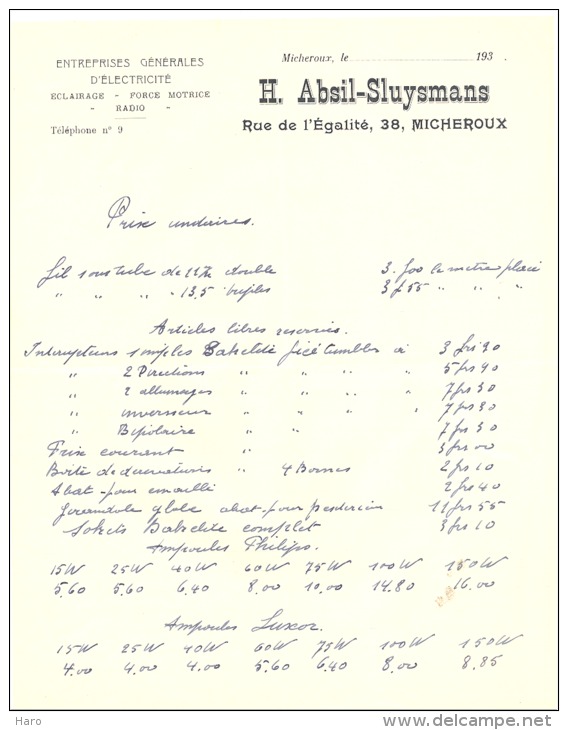 ENTREPRISES GÉNÉRALES
D'ÉLECTRICITÉ
ECLAIRAGE - FORCE MOTRICE
" RADIO "
Téléphone n° 9
Micheroux, le 193 .
H. Absil-Sluysmans
Rue de l'Égalité, 38, MICHEROUX
Prix unitaires.
fil sous tube de 11 double 3. le mètre placé
" " " " 13,5 3 f 55 " " "
Articles libres reservés.
Interrupteurs simples Bakelité tumbler à 3 frs 90
" 2 Directions " " " " 5 frs 40
" 2 allumages " " " " 7 frs 30
" inverseur " " " " 7 frs 30
" Bipolaire " " 7 frs 30
Prise courant " 3 frs 00
Boite de " 4 Bornes 2 frs 10
Abat-pour emaillé 2 frs 40
globe abat-pour 11 frs 55
Sokets Bakelite complet 3 frs 10
Ampoules Philips.
15W 25W 40W 60W 75W 100W 150W
5.60 5.60 6.40 8.00 10.00 14.80 16.00
Ampoules Luxor.
15W 25W 40W 60W 75W 100W 150W
4.00 4.00 4.00 5.60 6.40 8.00 8.85
Haro
www.delcampe.net